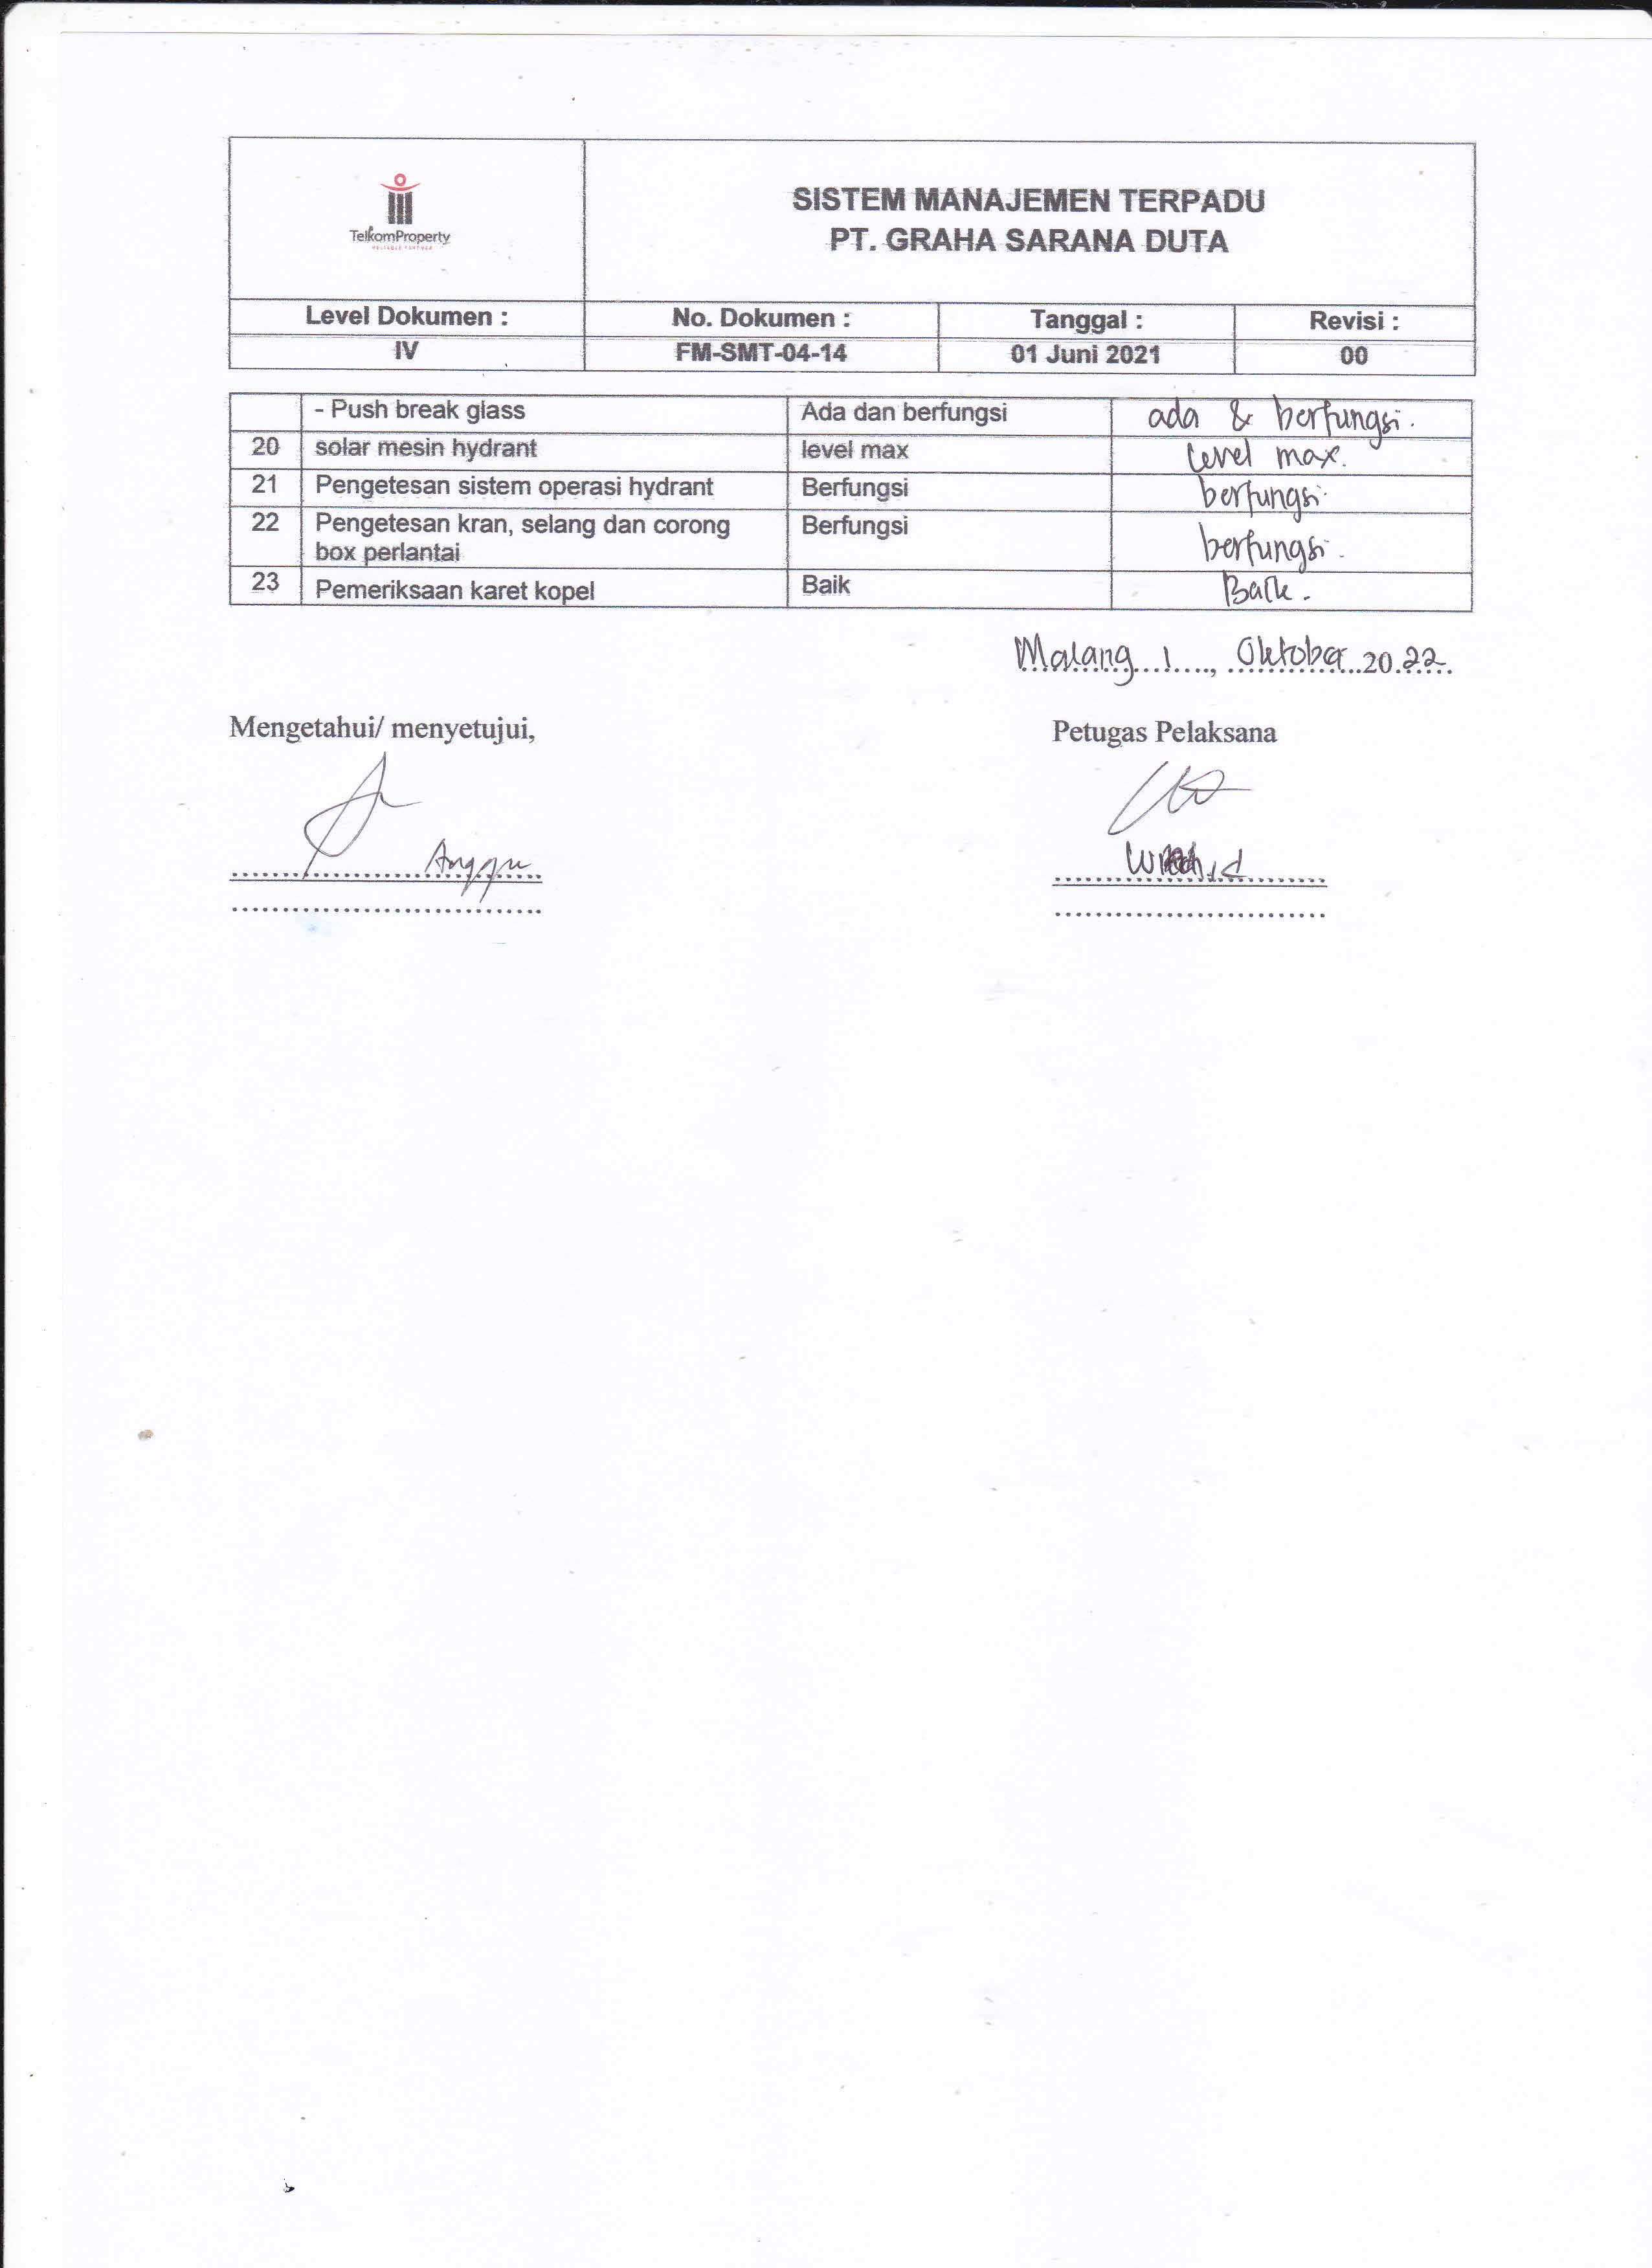 TelkomProperty
SISTEM MANAJEMEN TERPADU
PT. GRAHA SARANA DUTA
Level Dokumen : No. Dokumen : Tanggal : Revisi :
IV FM-SMT-04-14 01 Juni 2021 00
- Push break glass Ada dan berfungsi ada & berfungsi.
20 solar mesin hydrant level max level max.
21 Pengetesan sistem operasi hydrant Berfungsi berfungsi.
22 Pengetesan kran, selang dan corong Berfungsi berfungsi.
box perlantai
23 Pemeriksaan karet kopel Baik Baik.
Malang 1 ....., Oktober 2022
Mengetahui/ menyetujui, Petugas Pelaksana